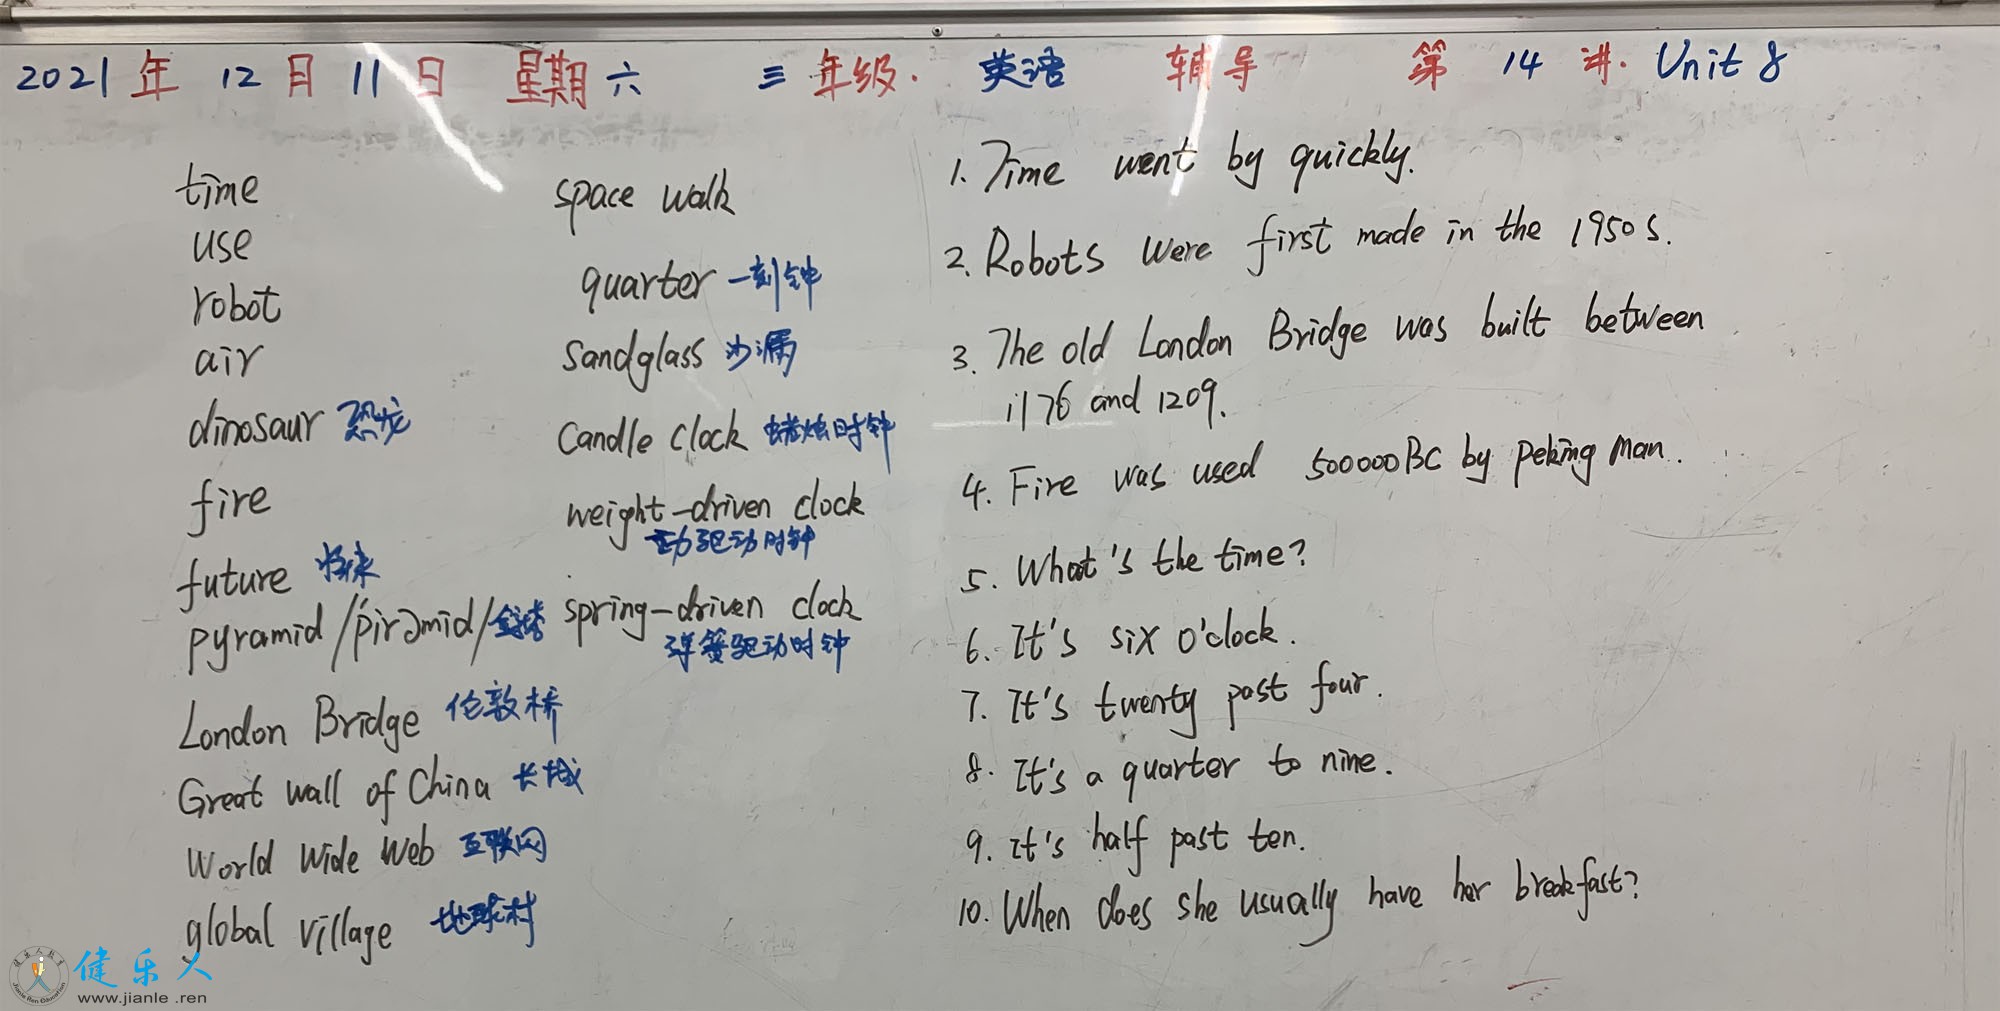 2021年12月11日 星期六 三年级. 英语 辅导 第14讲. Unit 8
time
use
robot
air
dinosaur 恐龙
fire
future 将来
pyramid /ˈpirəmid/ 金字塔
London Bridge 伦敦桥
Great wall of China 长城
World Wide Web 互联网
global village 地球村
space walk
quarter 一刻钟
sandglass 沙漏
Candle clock 蜡烛时钟
weight-driven clock
动驱动时钟
spring-driven clock
弹簧驱动时钟
1. Time went by quickly.
2. Robots were first made in the 1950s.
3. The old London Bridge was built between
1176 and 1209.
4. Fire was used 500000BC by Peking Man.
5. What's the time?
6. It's six o'clock.
7. It's twenty past four.
8. It's a quarter to nine.
9. It's half past ten.
10. When does she usually have her breakfast?
健乐人
www.jianle.ren